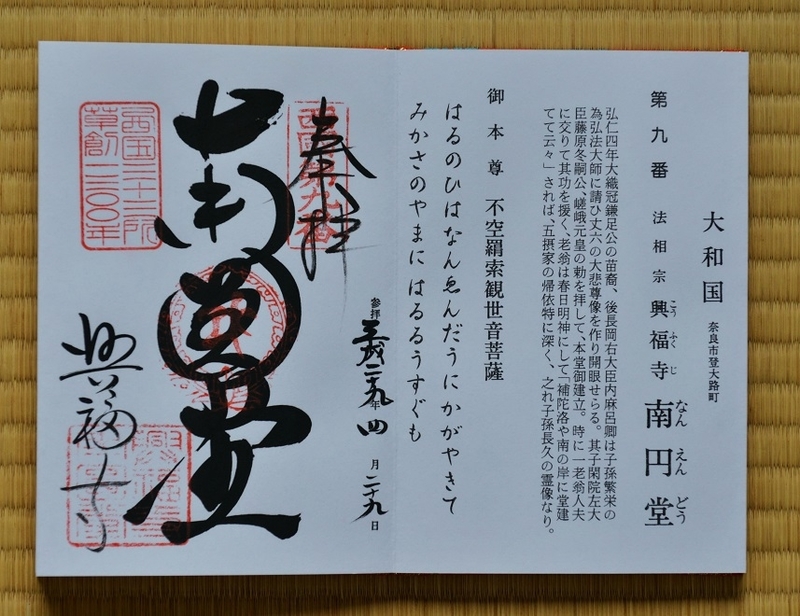 大和国
奈良市登大路町
第九番 法相宗 興福寺 南円堂
こうふくじ
なんえんどう
弘仁四年大織冠鎌足公の苗裔、後長岡右大臣内麻呂卿は子孫繁栄の
為弘法大師に請ひ丈六の大悲尊像を作り開眼せらる。其子閑院左大
臣藤原冬嗣公、嵯峨元皇の勅を拝して、本堂御建立。時に一老翁人夫
に交りて其功を援く、老翁は春日明神にして「補陀洛や南の岸に堂建
てて云々」されば、五摂家の帰依特に深く、之れ子孫長久の霊像なり。
御本尊 不空羂索観世音菩薩
はるのひはなんゑんだうにかがやきて
みかさのやまに はるるうすぐも
奉拝
西国第九番
参拝 平成二十九年 四月二十九日
南円堂
西国三十三所
草創一三〇〇年
興福寺